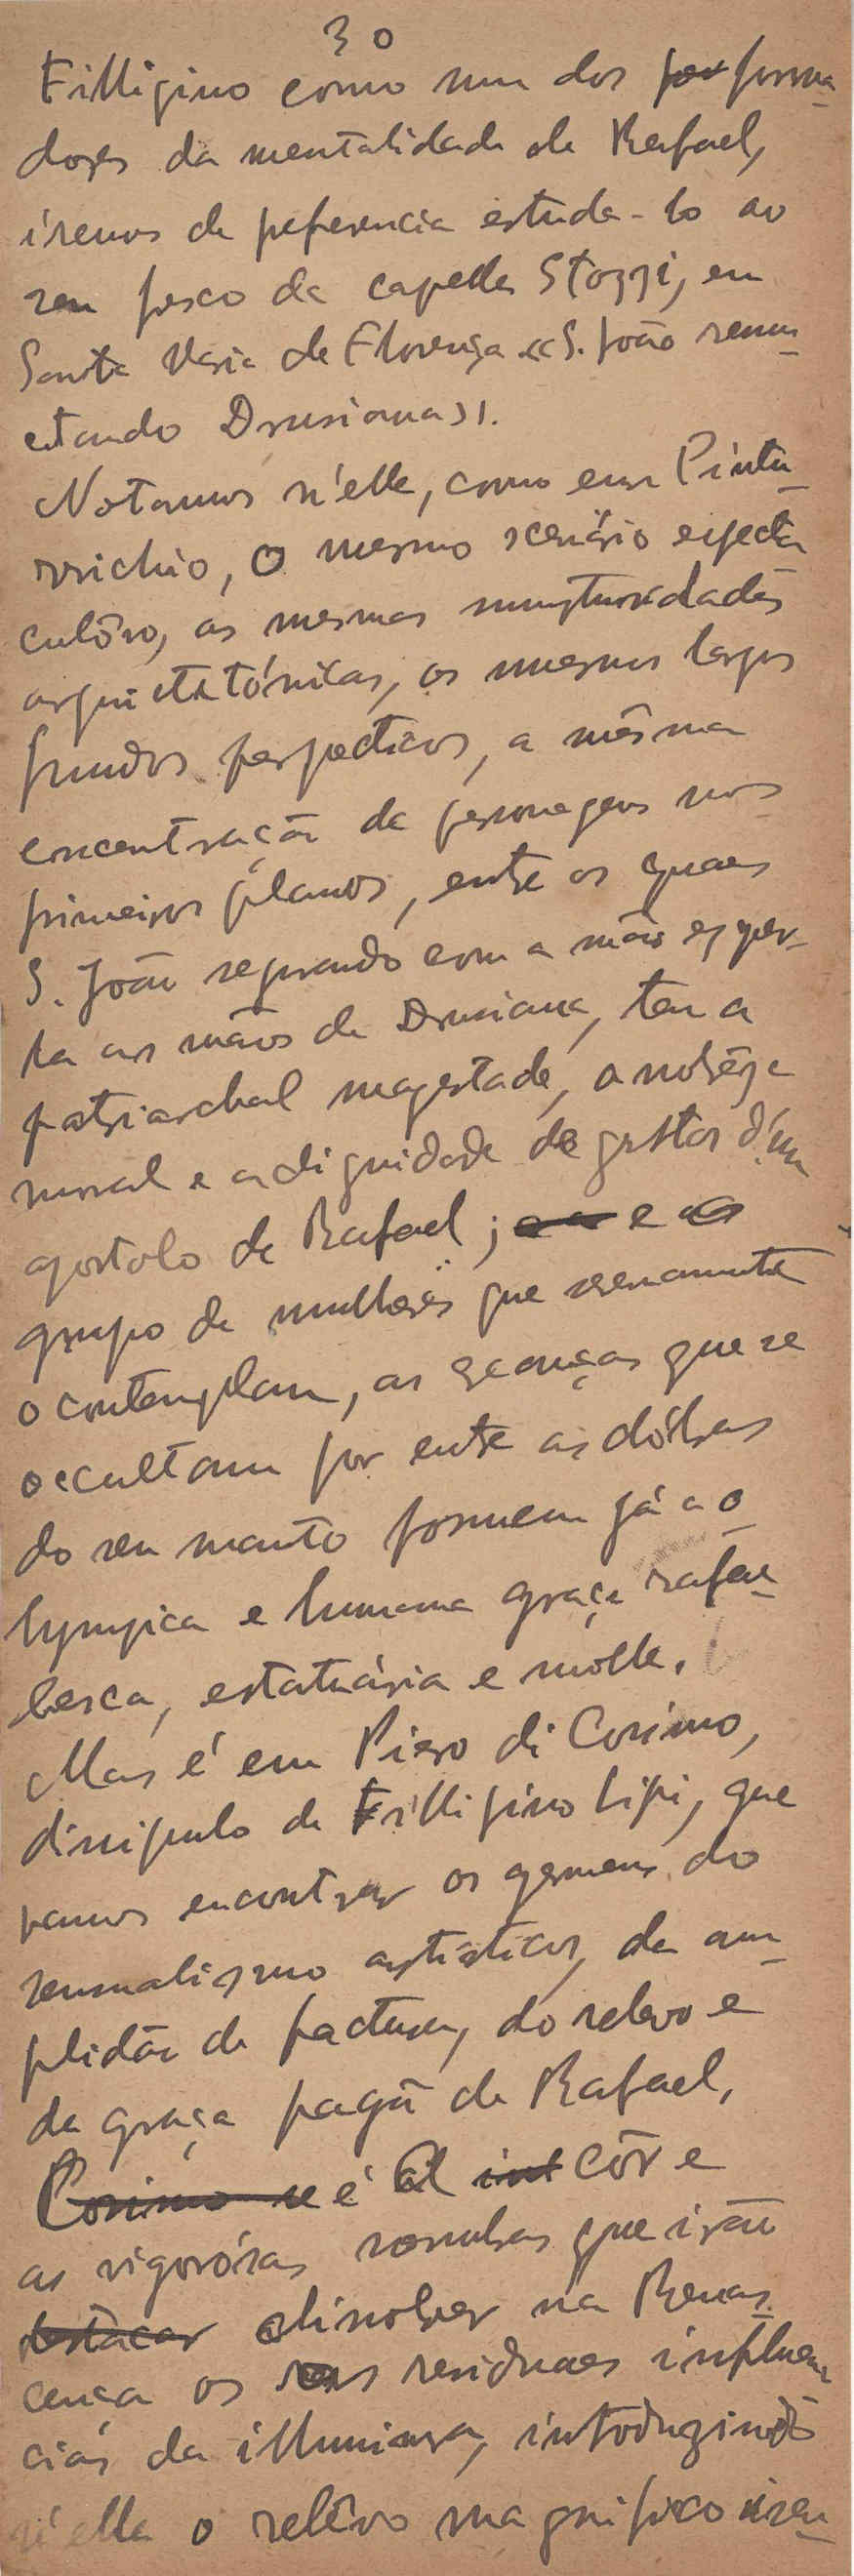 30
Fillipino como um dos for forma-
dores da mentalidade de Rafael,
iremos de preferencia estuda-lo ao
seu fresco da capella Strozzi, em
Santa Maria de Florença «S. João ressus-
citando Drusiana».
Notamos n'elle, como em Pintu-
rrichio, o mesmo scenário especta-
culôso, as mesmas sumptuosidades
arquitetónicas, os mesmos largos
fundos perspecticos, a mêsma
concentração de personagens nos
primeiros planos, entre os quaes
S. João segurando com a mão esquer-
da as mãos de Drusiana, tem a
patriarchal magestade, a nobrêza
moral e a dignidade de gestos d'um
apostolo de Rafael; e a e o
grupo de mulheres que serenamente
o contemplam, as creanças que se
occultam por entre as dóbras
do seu manto possuem já a o-
lympica e humana graça rafae-
lesca, estatuária e mólle.
Mas é em Piero di Cosimo,
discipulo de Fillipino Lipi, que
vamos encontrar os germens do
sensualismo artistico, da am-
plidão de factura, do relevo e
da graça pagã de Rafael,
Cosimo se é a int côr e
as vigorósas sombras que irão
destacar dissolver na Renas-
cença os seus residuaes influen-
cias da illuminura, introduzindo
n'ella o relêvo magnifico